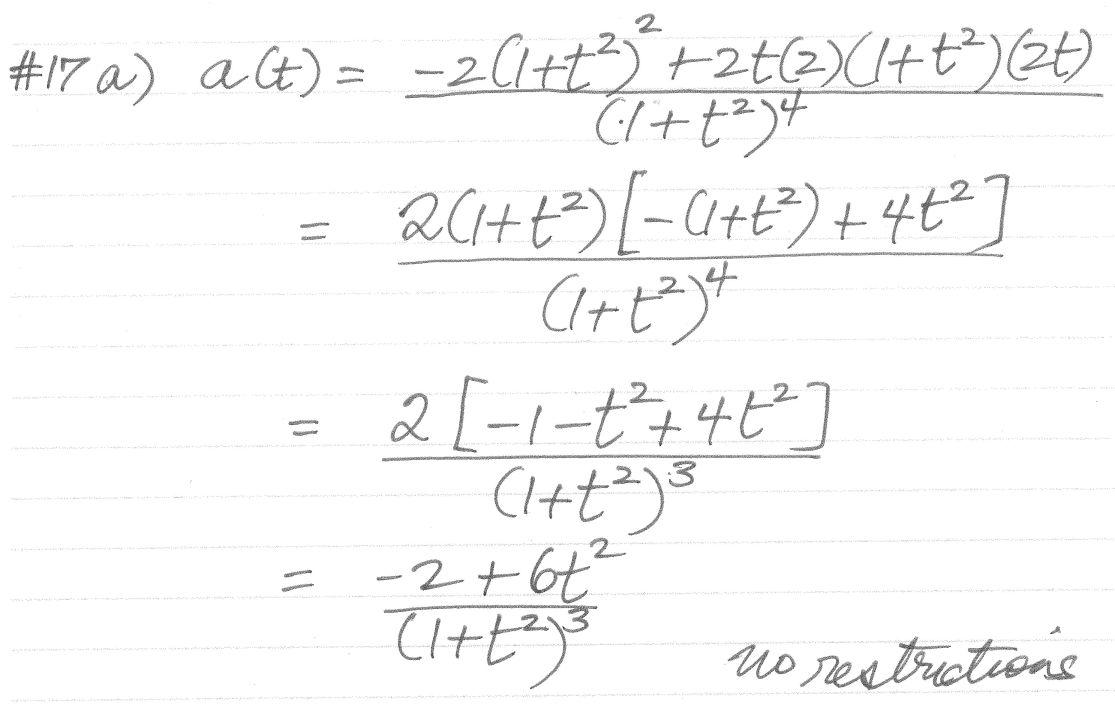 #17 a) a(t) = \frac{-2(1+t^2)^2 + 2t(2)(1+t^2)(2t)}{(1+t^2)^4}
= \frac{2(1+t^2)[-(1+t^2) + 4t^2]}{(1+t^2)^4}
= \frac{2[-1-t^2+4t^2]}{(1+t^2)^3}
= \frac{-2+6t^2}{(1+t^2)^3}
no restrictions